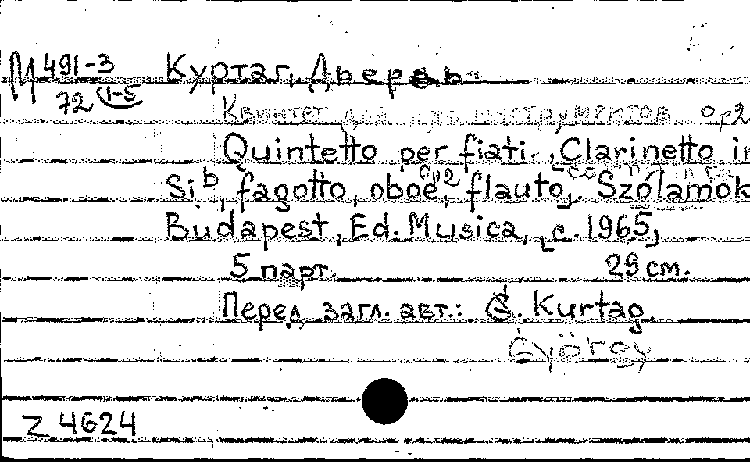 М 491-3 Куртаг, Дьердь.
72 1-5
Квинтет для дух. инструментов. Op2
Quintetto per fiati. Clarinetto in
Si b, fagotto, oboe, flauto. Szólamok
op2
Budapest, Ed. Musica, [c. 1965]
5 парт. 29 см.
Перед загл. авт.: G. Kurtag.
György
Z 4624